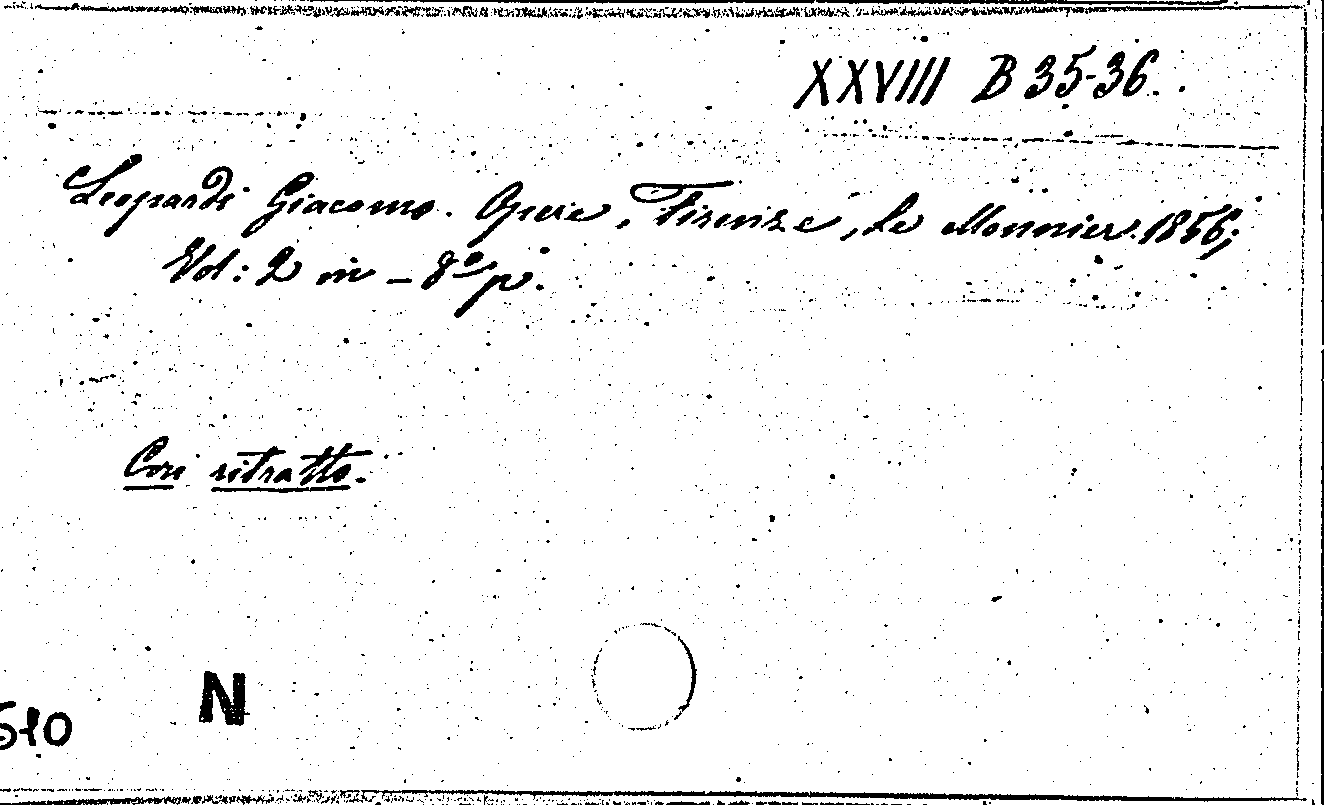 XXVIII B 35-36.
Leopardi Giacomo. Opere, Firenze, Le Monnier. 1856;
Vol: 2 in - 8º p.
Con ritratto.
N
510